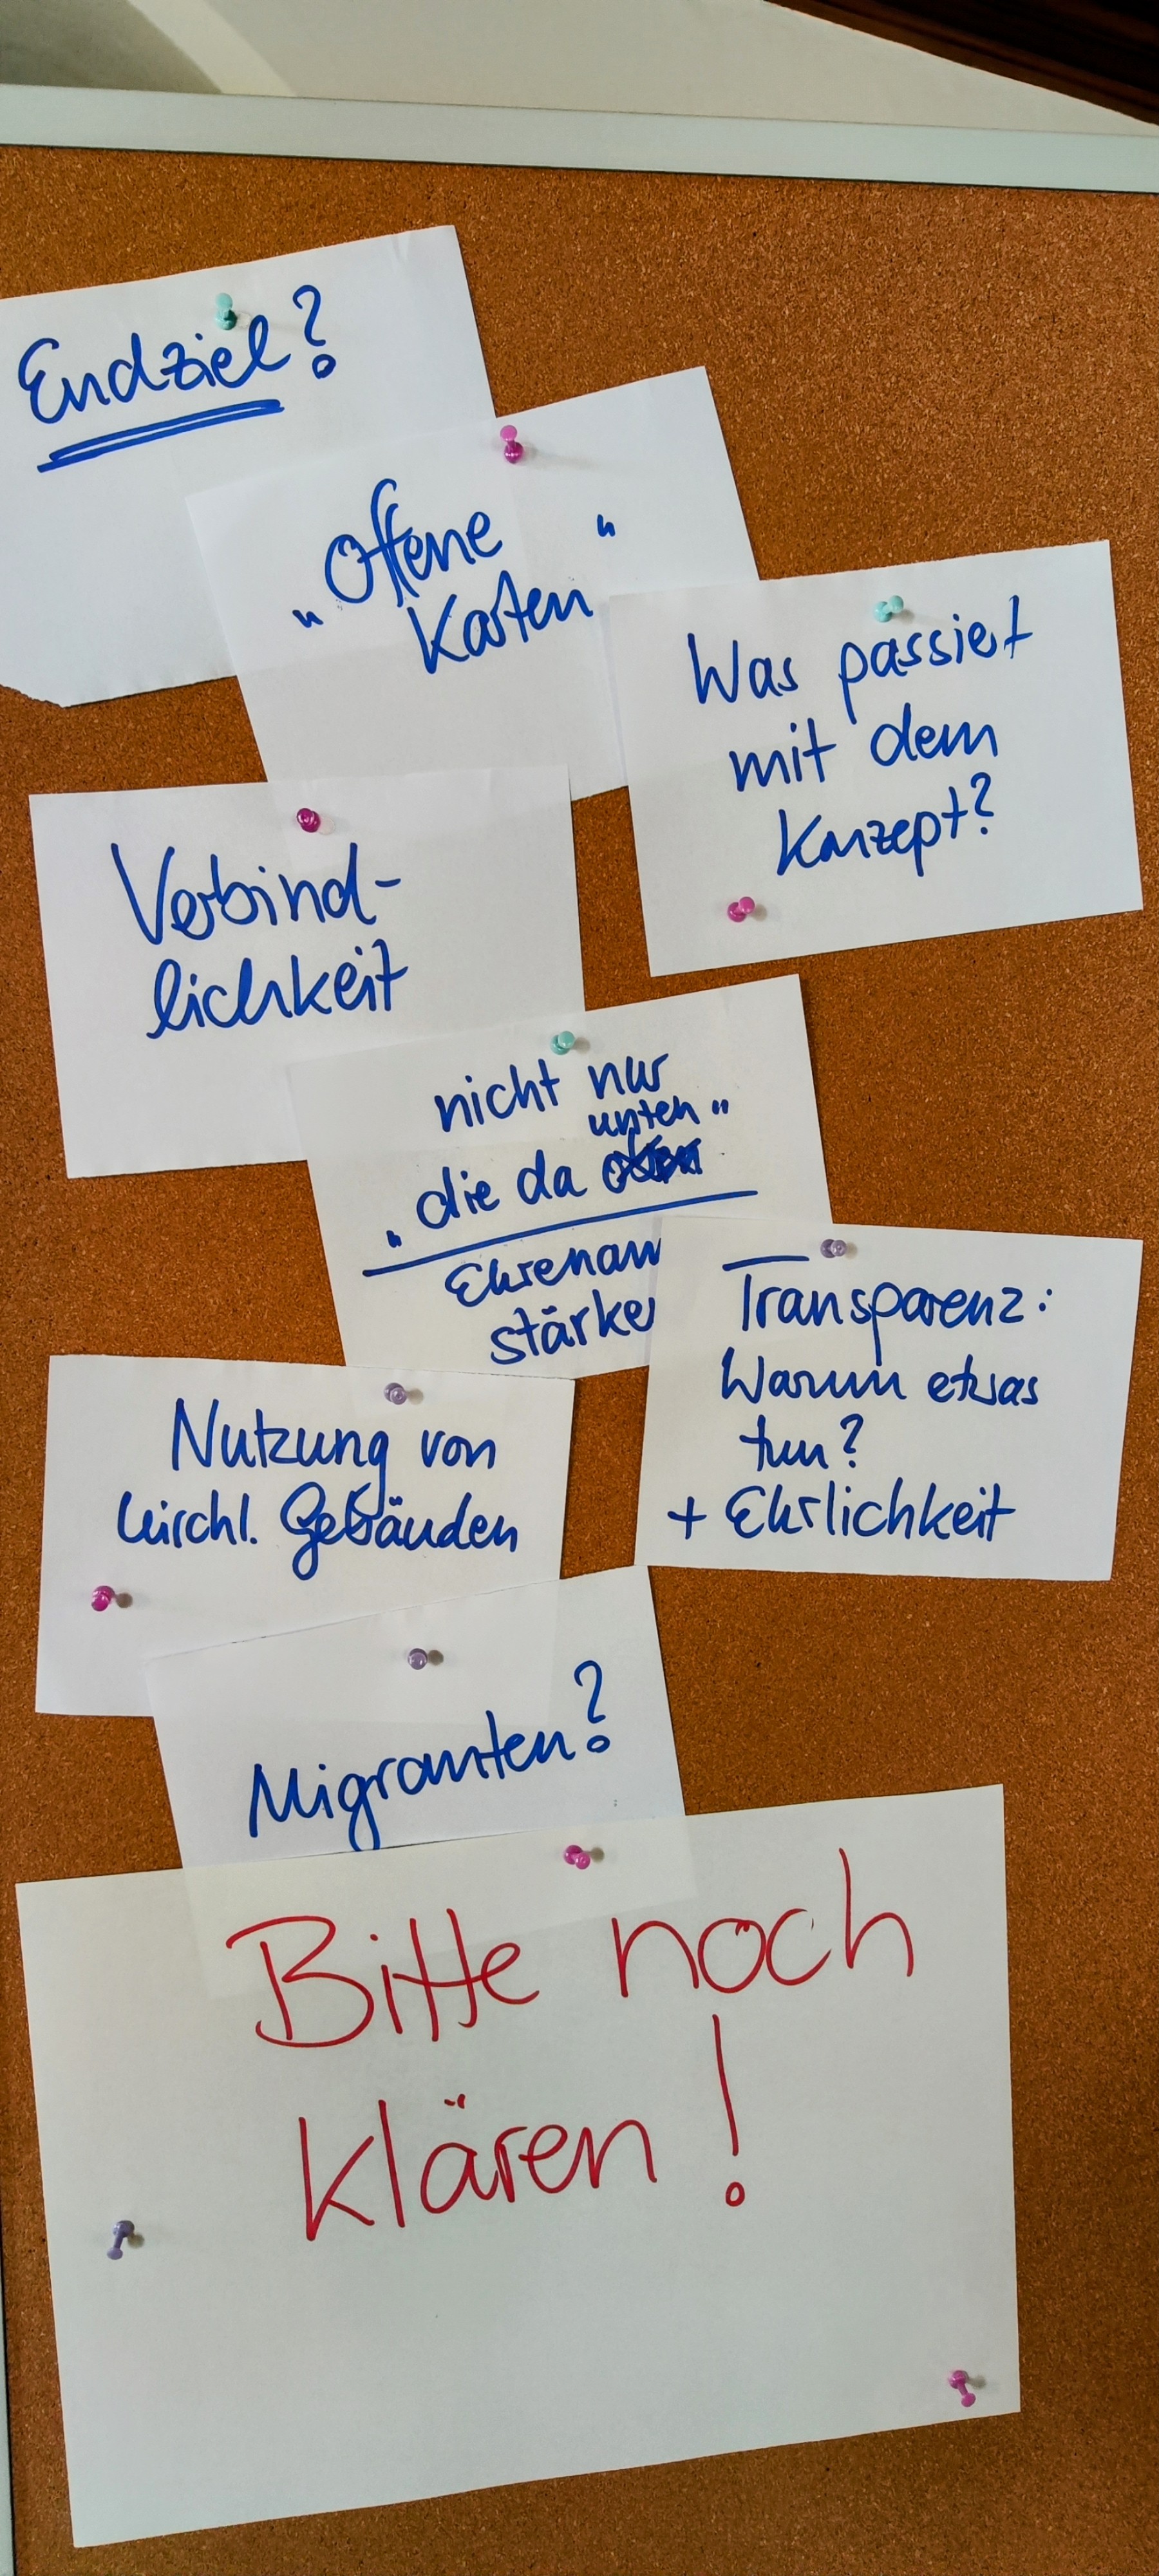 Endziel?
„Offene
Karten"
Was passiert
mit dem
Konzept?
Verbind-
lichkeit
nicht nur
unten"
„die da
Ehrenam
stärke
Transparenz:
Warum etwas
tun?
+ Ehrlichkeit
Nutzung von
kirchl. Gebäuden
Migranten?
Bitte noch
klären!